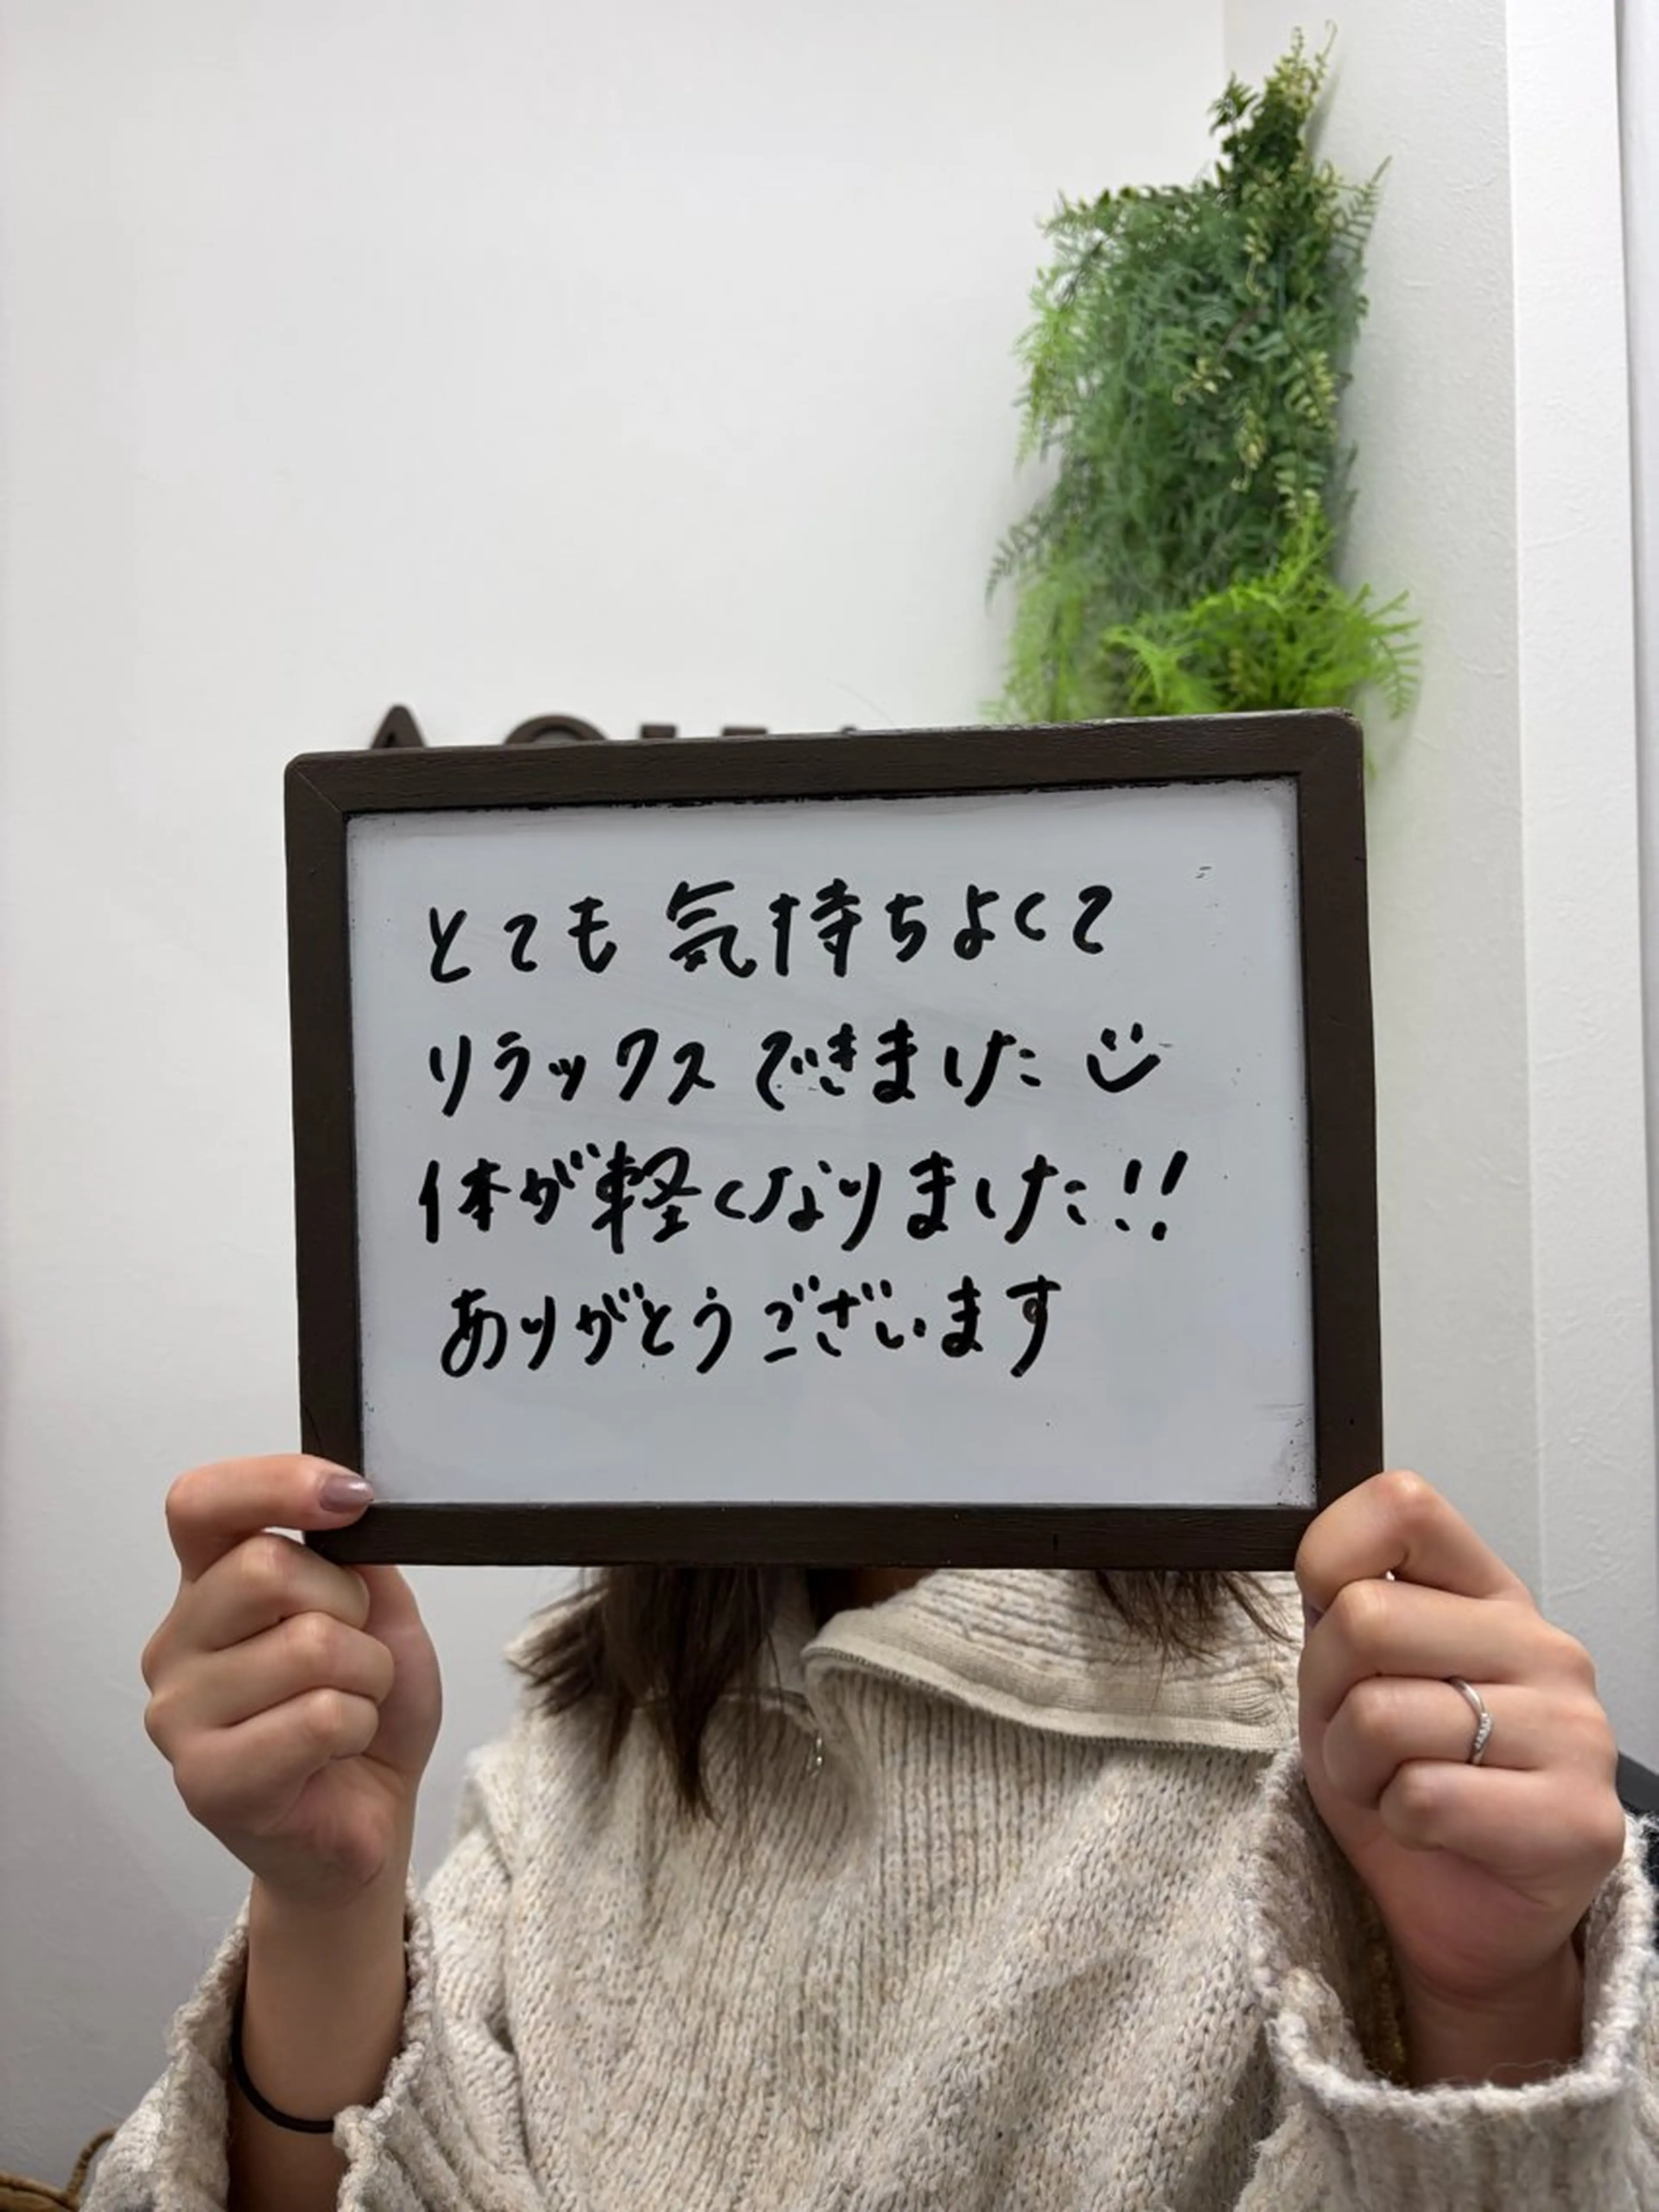 とても気持ちよくて
リラックスできました
体が軽くなりました!!
ありがとうございます